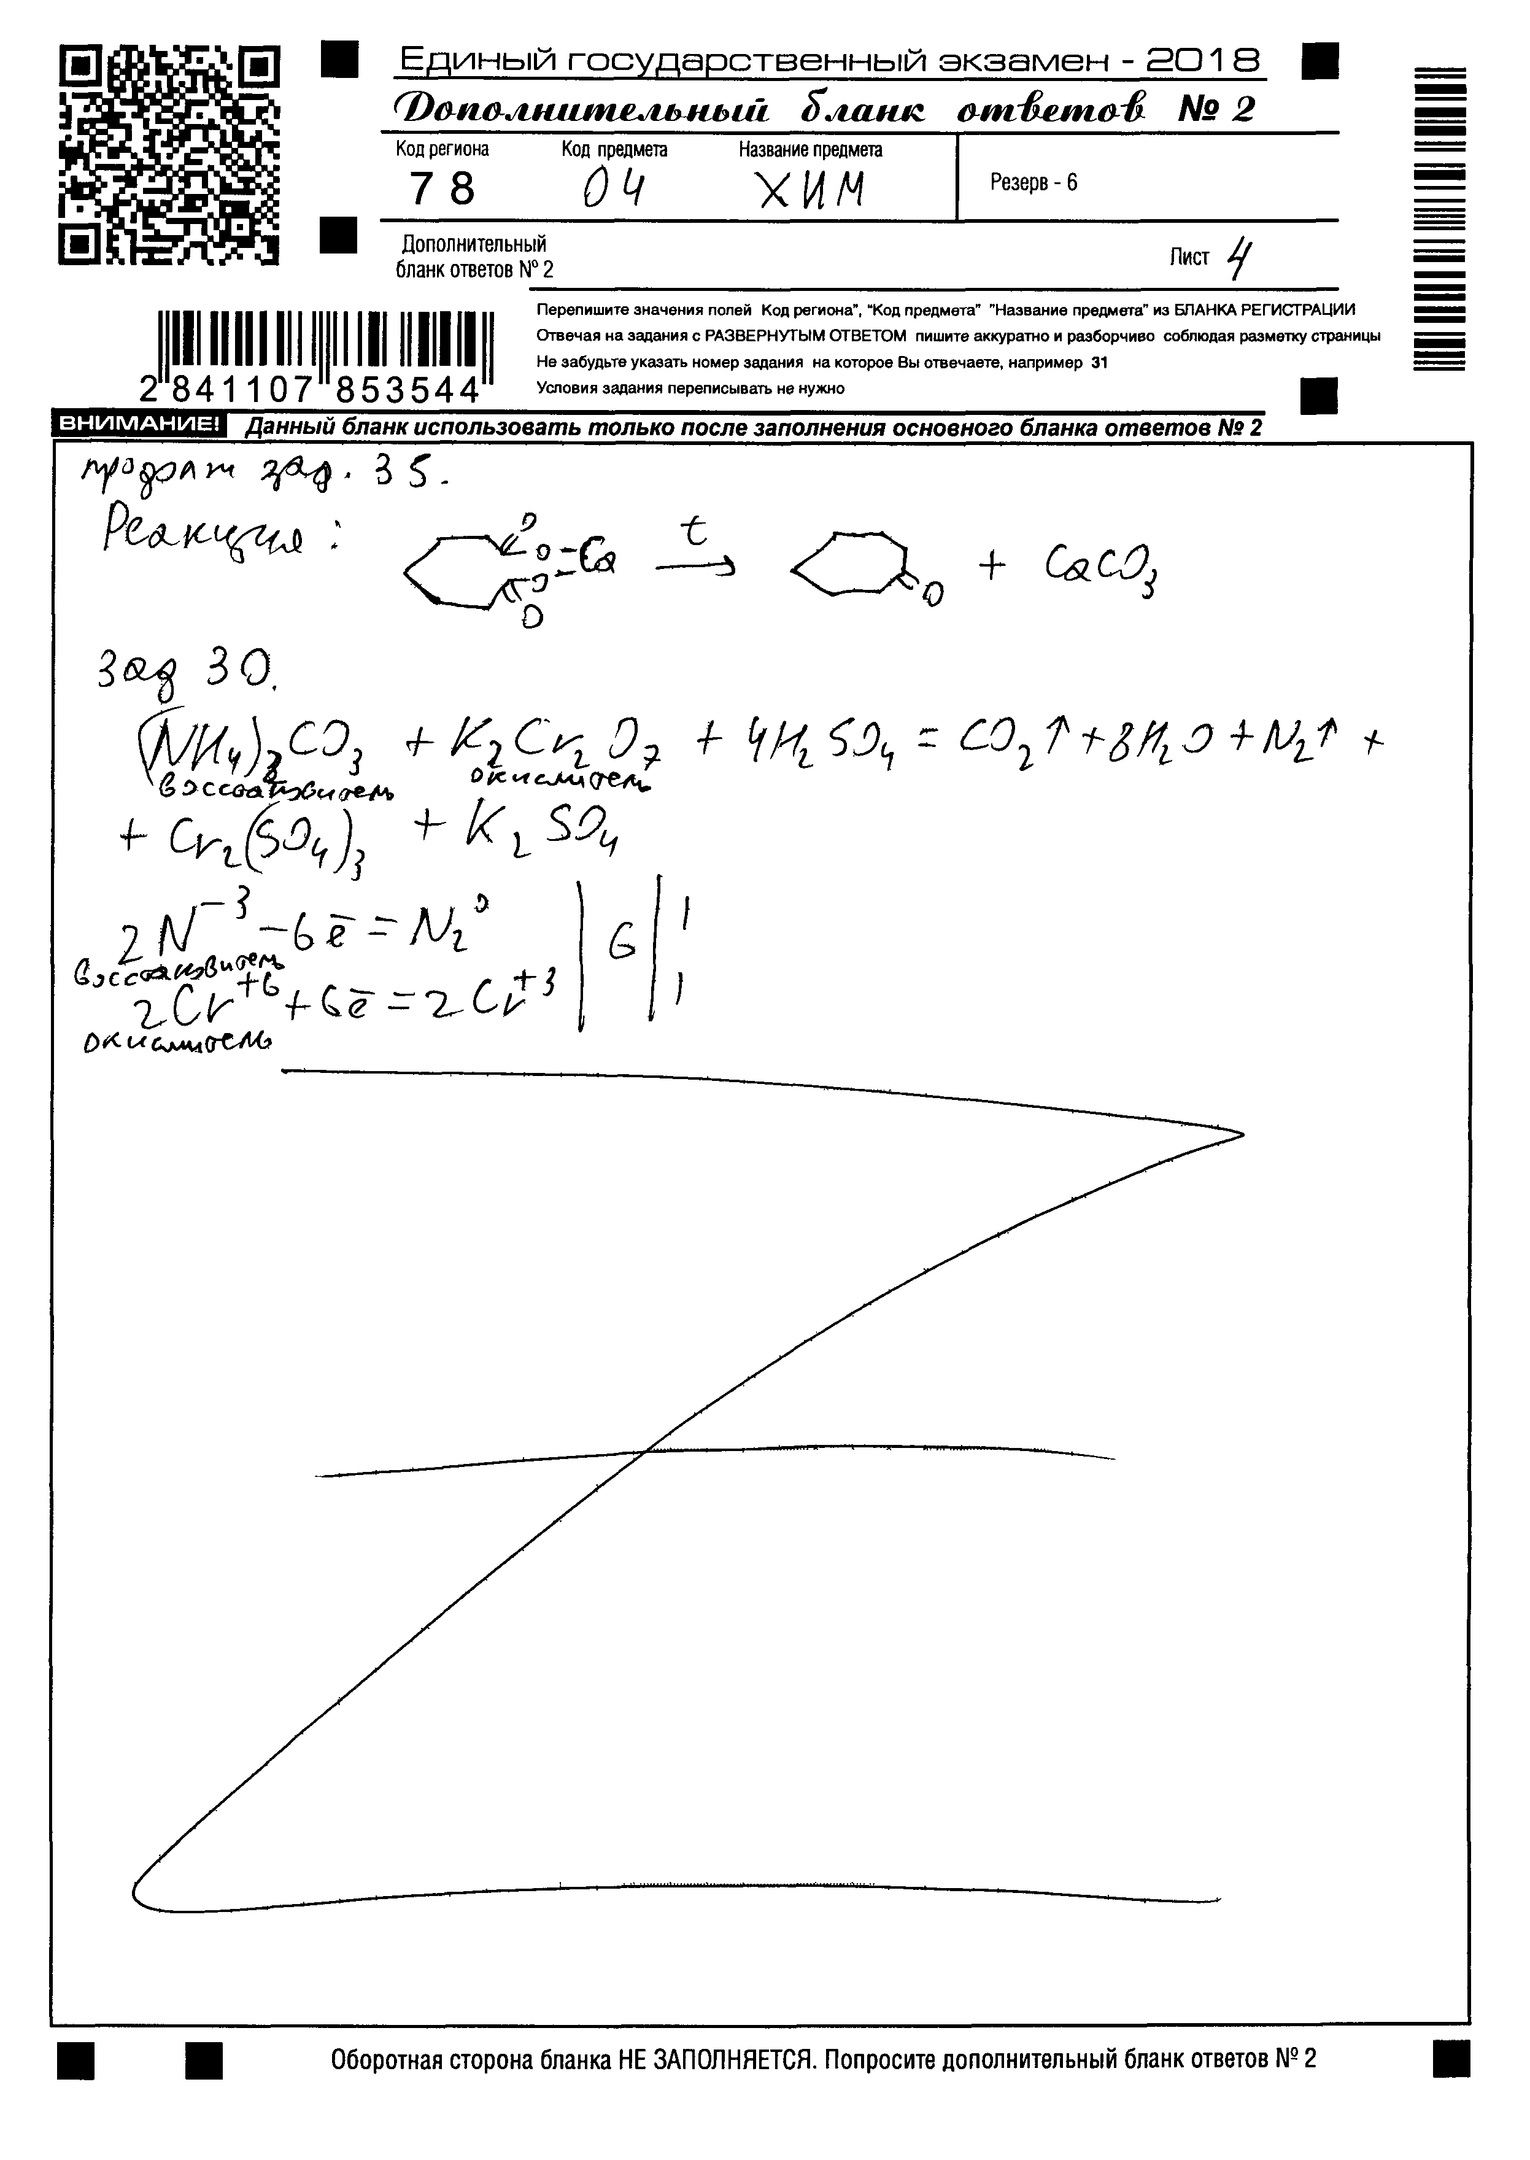 Единый государственный экзамен - 2018
Дополнительный бланк ответов № 2
Код региона Код предмета Название предмета
78 04 ХИМ Резерв - 6
Дополнительный
бланк ответов № 2
Лист 4
Перепишите значения полей Код региона", "Код предмета" "Название предмета" из БЛАНКА РЕГИСТРАЦИИ
Отвечая на задания с РАЗВЕРНУТЫМ ОТВЕТОМ пишите аккуратно и разборчиво соблюдая разметку страницы
Не забудьте указать номер задания на которое Вы отвечаете, например 31
Условия задания переписывать не нужно
2 841107 853544
ВНИМАНИЕ! Данный бланк использовать только после заполнения основного бланка ответов № 2
продолж зад. 35.
Реакция:
O
O - Ca t → O + CaCO3
O
O
Зад 30.
(NH4)2CO3 + K2Cr2O7 + 4H2SO4 = CO2↑ + 8H2O + N2↑ +
восстановитель окислитель
+ Cr2(SO4)3 + K2SO4
2N⁻³ - 6ē = N2⁰ | 6 | 1
восстановитель
2Cr⁺⁶ + 6ē = 2Cr⁺³ | | 1
окислитель
Оборотная сторона бланка НЕ ЗАПОЛНЯЕТСЯ. Попросите дополнительный бланк ответов № 2